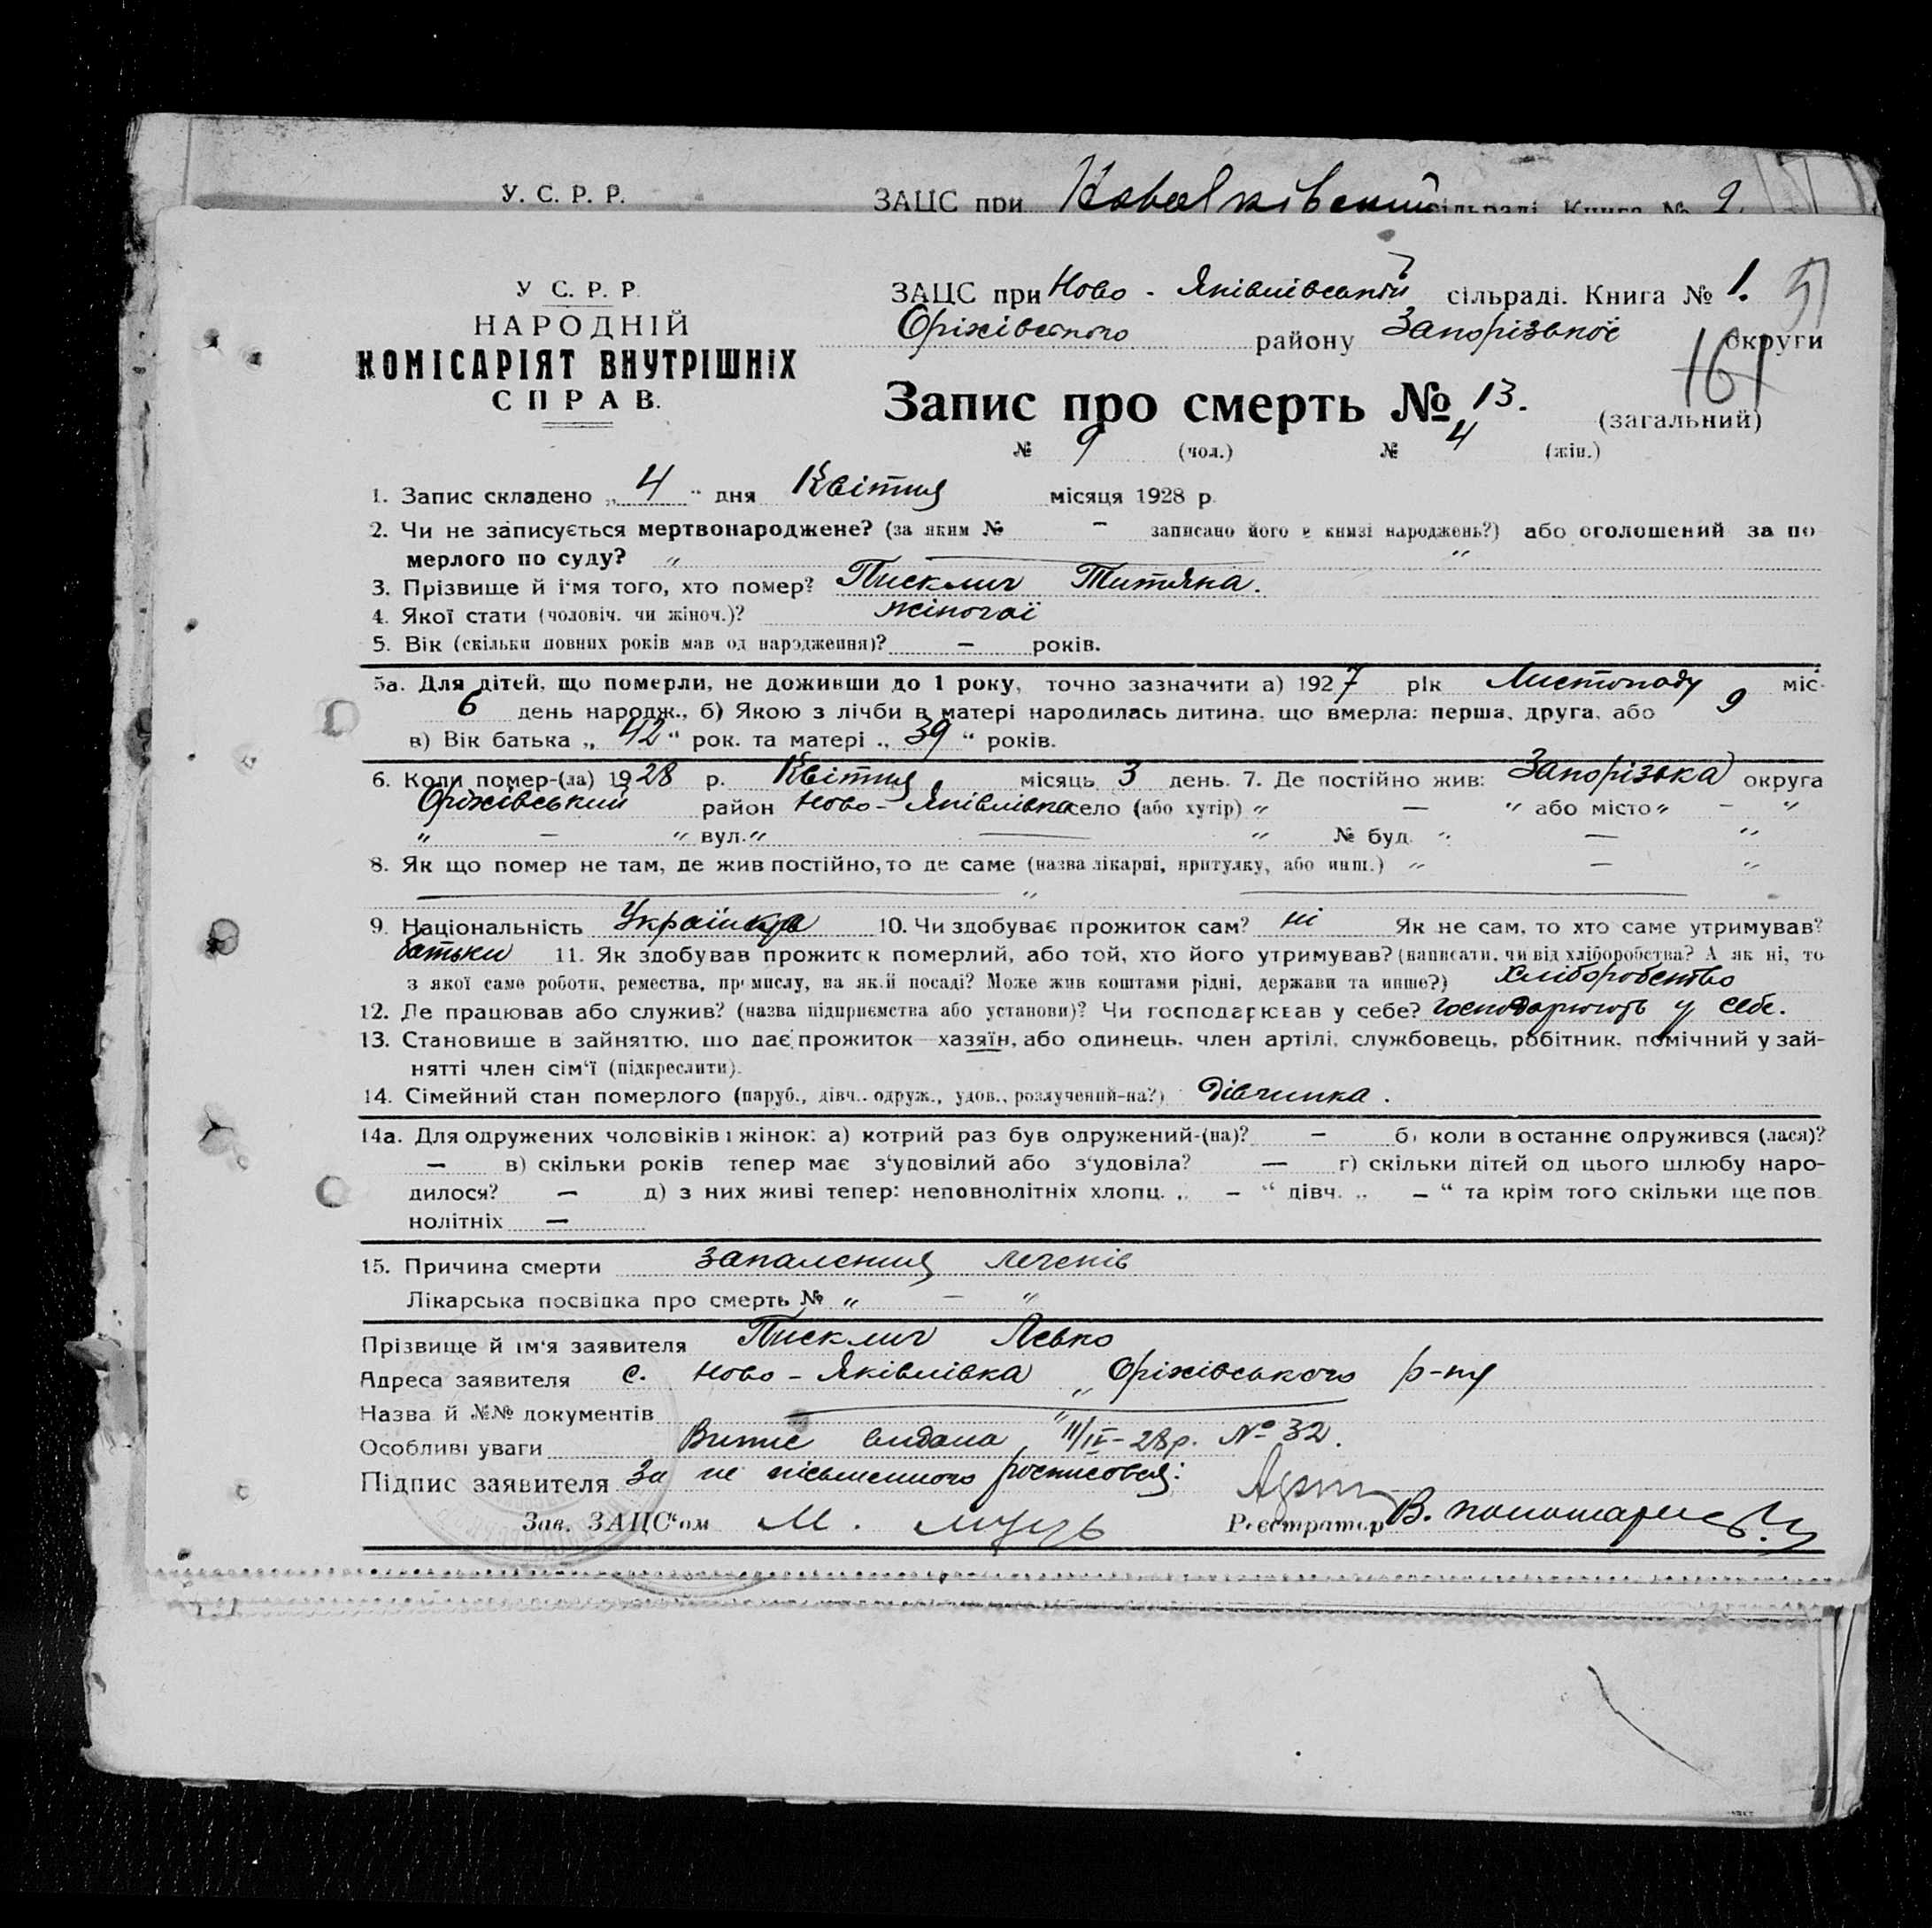 У. С. Р. Р. ЗАЦС при сільраді. Книга № 2.
У С. Р. Р. ЗАЦС при Ново - Яківлівській сільраді. Книга № 1. 51
НАРОДНІЙ Оріхівського району Запорізької округи
КОМІСАРІЯТ ВНУТРІШНІХ 161
СПРАВ. Запис про смерть № 13. (загальний)
№ 9 (чол.) № 4 (жін.)
1. Запис складено „ 4 “ дня Квітня місяця 1928 р.
2. Чи не записується мертвонароджене? (за яким № – записано його в книзі народжень?) або оголошений за по
мерлого по суду? „ — “
3. Прізвище й ім'я того, хто помер? Писклич Титяна.
4. Якої стати (чоловіч. чи жіноч.)? жіночої
5. Вік (скільки повних років мав од народження)? – років.
5а. Для дітей, що померли, не доживши до 1 року, точно зазначити а) 1927 рік Листопаду міс-
6 день народж., б) Якою з лічби в матері народилась дитина, що вмерла: перша, друга, або 9
в) Вік батька „ 42 “ рок. та матері „ 39 “ років.
6. Коли помер-(ла) 1928 р. Квітня місяць 3 день. 7. Де постійно жив: Запорізька округа
Оріхівський район Ново - Яківлівка село (або хутір) „ — “ або місто „ – “
„ – “ вул. „ — “ № буд. „ — “
8. Як що помер не там, де жив постійно, то де саме (назва лікарні, притулку, або инш.) „ — “
— „ —
9. Національність Українка 10. Чи здобуває прожиток сам? ні Як не сам, то хто саме утримував?
батьки 11. Як здобував прожиток померлий, або той, хто його утримував? (написати, чи від хліборобства? А як ні, то
з якої саме роботи, ремества, промислу, на якій посаді? Може жив коштами рідні, держави та инше?) хліборобство
12. Де працював або служив? (назва підприємства або установи)? Чи господарював у себе? господарюють у себе.
13. Становише в зайняттю, що дає прожиток—хазяїн, або одинець, член артілі, службовець, робітник, помічний у зай-
нятті член сім‘ї (підкреслити).
14. Сімейний стан померлого (паруб., дівч., одруж., удов., розлучений-на?) дівчинка.
14а. Для одружених чоловіків і жінок: а) котрий раз був одружений-(на)? – б) коли в останнє одружився (лася)?
– в) скільки років тепер має з‘удовілий або з‘удовіла? — г) скільки дітей од цього шлюбу наро-
дилося? – д) з них живі тепер: неповнолітніх хлопц. „ – “ дівч. „ – “ та крім того скільки ще пов-
нолітніх —
15. Причина смерти запалення легенів
Лікарська посвідка про смерть № „ – “
Прізвище й ім‘я заявителя Писклич Левко
Адреса заявителя с. Ново - Яківлівка, Оріхівського р-ну
Назва й №№ документів — „
Особливі уваги Витяг видана, 11/IV-28р. № 32.
Підпис заявителя За не письменного росписовся:
Зав. ЗАЦС‘ом М. Реєстратор В.